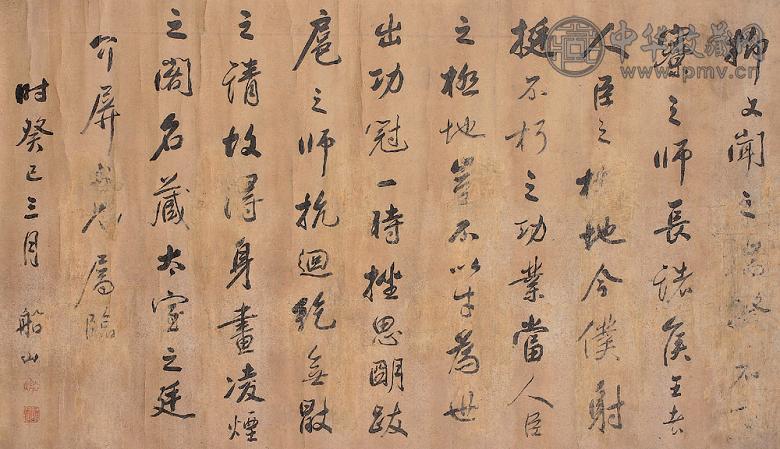 抑又聞之端揆
寮之師長諸侯王者
人臣之極地今僕射
挺不朽之功業當人臣
之極地豈不以才為世
出功冠一時挫思明跋
扈之師抗迴紇無厭
之請故得身畫凌煙
之閣名藏太室之廷
介屏兄屬臨
時癸巳三月 船山
中华收藏网
www.pmv.cn